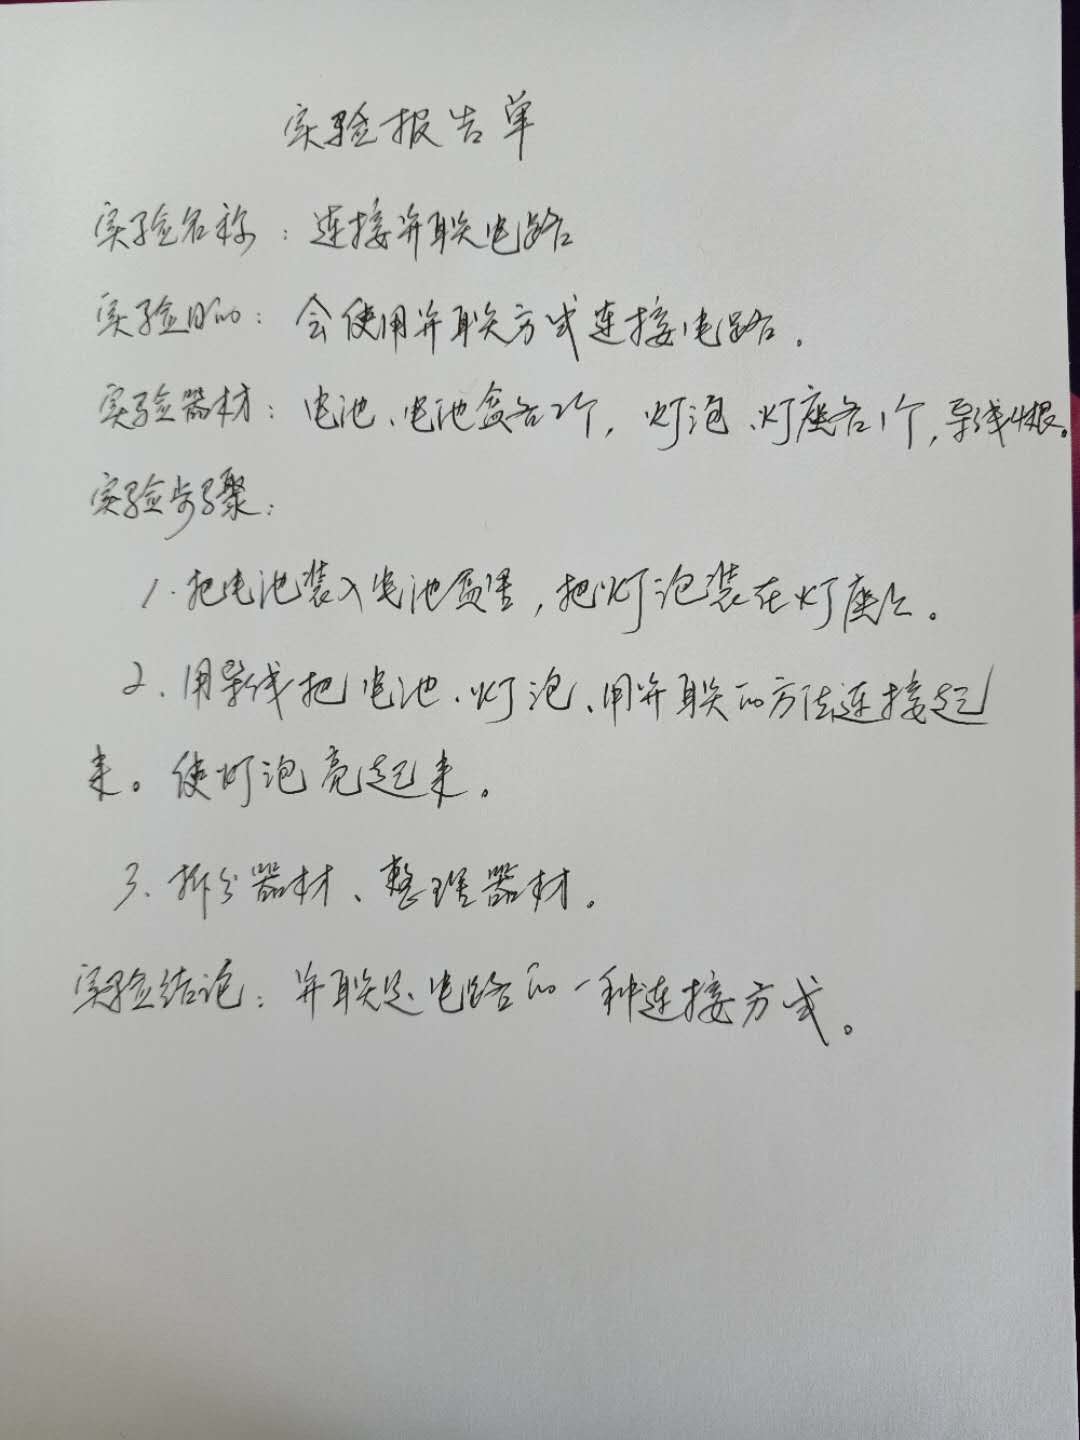 实验报告单
实验名称：连接并联电路
实验目的：会使用并联方式连接电路.
实验器材：电池、电池盒各2个，灯泡、灯座各1个，导线4根。
实验步骤：
1.把电池装入电池盒里，把灯泡装在灯座上。
2、用导线把电池、灯泡、用并联的方法连接起
来。使灯泡亮起来。
3、拆分器材、整理器材。
实验结论：并联是电路的一种连接方式。